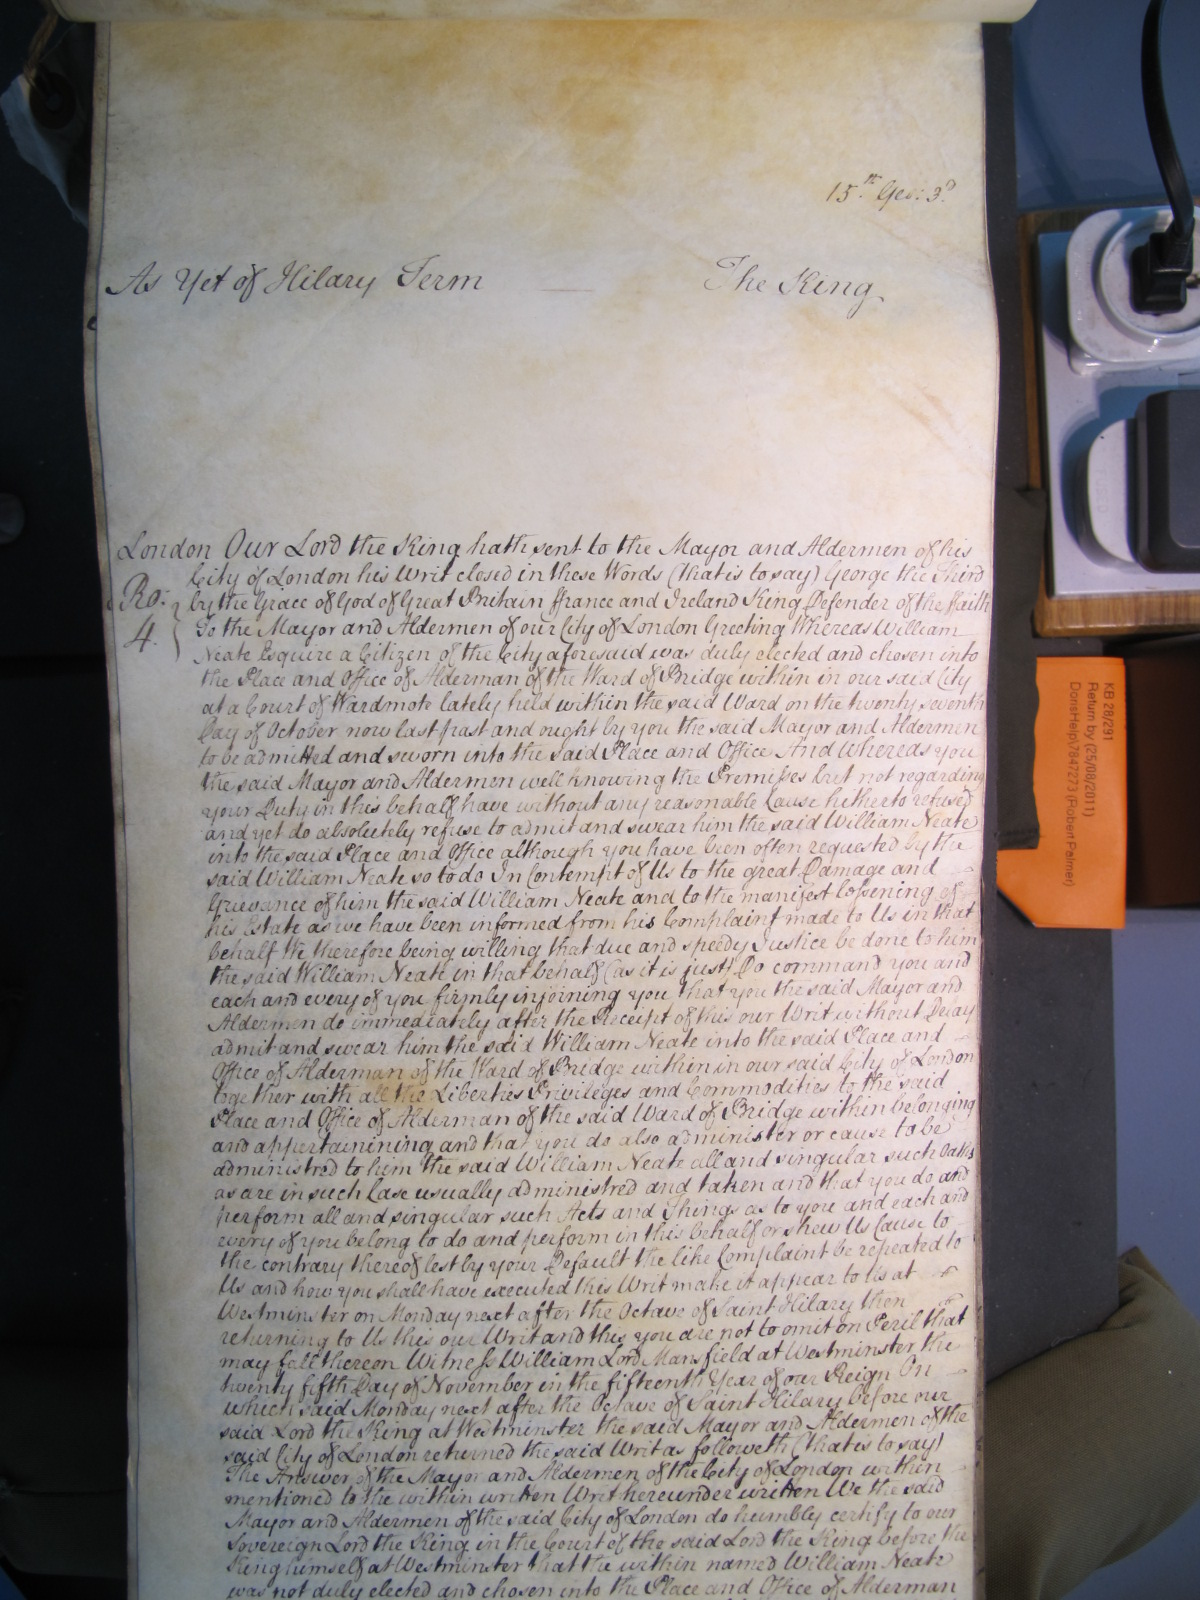 15.th Geo: 3.d
As Yet of Hilary Term The King
London Our Lord the King hath sent to the Mayor and Aldermen of his
City of London his Writ closed in these Words (that is to say) George the Third
Ro: 4. by the Grace of God of Great Britain ffrance and Ireland King Defender of the ffaith
To the Mayor and Aldermen of our City of London Greeting Whereas William
Neate Esquire a Citizen of the City aforesaid was duly elected and chosen into
the Place and Office of Alderman of the Ward of Bridge within in our said City
at a Court of Wardmote lately held within the said Ward on the twenty seventh
Day of October now last past and ought by you the said Mayor and Aldermen
to be admitted and sworn into the said Place and Office And Whereas you
the said Mayor and Aldermen well knowing the Premisses but not regarding
your Duty in this behalf have without any reasonable Cause hitherto refused
and yet do absolutely refuse to admit and swear him the said William Neate
into the said Place and Office although you have been often requested by the
said William Neate so to do In Contempt of Us to the great Damage and
Grievance of him the said William Neate and to the manifest lossening of
his Estate as we have been informed from his Complaint made to Us in that
behalf We therefore being willing that due and speedy Justice be done to him
the said William Neate in that behalf (as it is just) Do command you and
each and every of you firmly injoining you that you the said Mayor and
Aldermen do immediately after the Receipt of this our Writ without Delay
admit and swear him the said William Neate into the said Place and
Office of Alderman of the Ward of Bridge within in our said City of London
together with all the Liberties Privileges and Commodities to the said
Place and Office of Alderman of the said Ward of Bridge within belonging
and appertainining and that you do also administer or cause to be
administred to him the said William Neate all and singular such Oaths
as are in such Case usually administred and taken and that you do and
perform all and singular such Acts and Things as to you and each and
every of you belong to do and perform in this behalf or shew Us Cause to
the contrary thereof lest by your Default the like Complaint be repeated to
Us and how you shall have executed this Writ make it appear to Us at
Westminster on Monday next after the Octave of Saint Hilary then
returning to Us this our Writ and this you are not to omit on Peril that
may fall thereon Witness William Lord Mansfield at Westminster the
twenty fifth Day of November in the fifteenth Year of our Reign On
which said Monday next after the Octave of Saint Hilary before our
said Lord the King at Westminster the said Mayor and Aldermen of the
said City of London returned the said Writ as followeth (that is to say)
The Answer of the Mayor and Aldermen of the City of London within
mentioned to the within written Writ hereunder written We the said
Mayor and Aldermen of the said City of London do humbly certify to our
Sovereign Lord the King in the Court of the said Lord the King before the
King himself at Westminster that the within named William Neate
was not duly elected and chosen into the Place and Office of Alderman
KB 28/291
Return by (25/08/2011)
DorisHelp\7847273 (Robert Palmer)